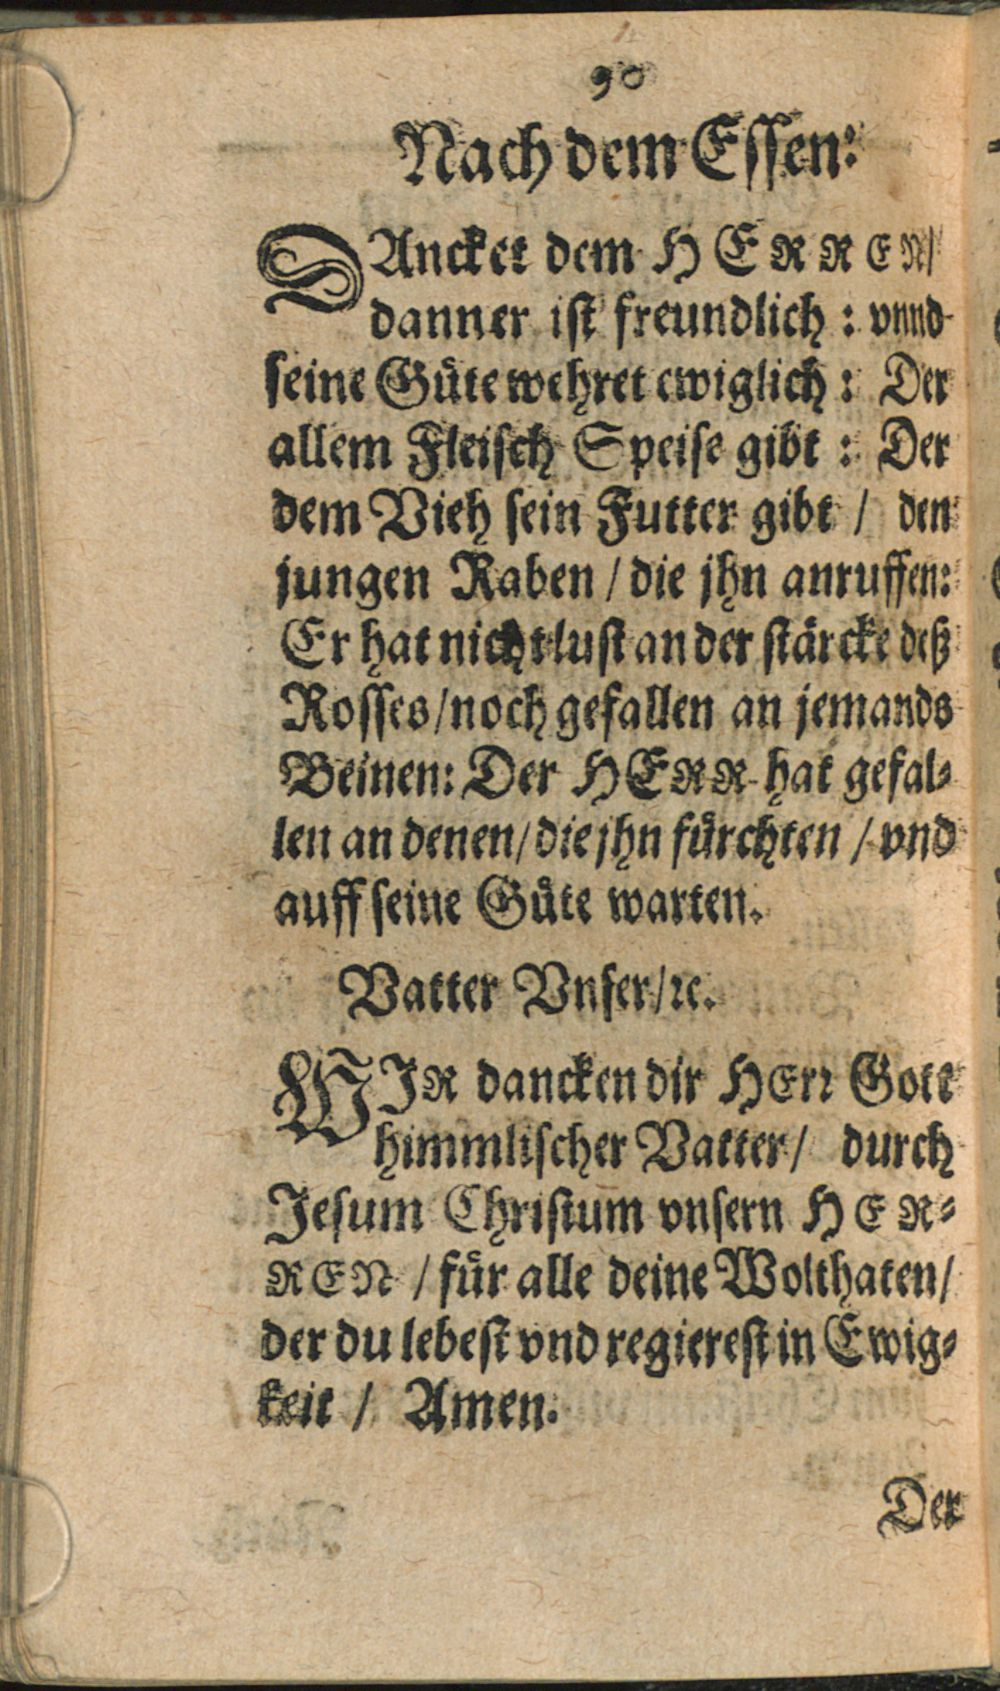 90
Nach dem Essen:
DAncket dem HERREN/
danner ist freundlich : vnnd
seine Gůte wehret ewiglich : Der
allem Fleisch Speise gibt : Der
dem Vieh sein Futter gibt / den
jungen Raben / die jhn anruffen:
Er hat nicht lust an der stärcke deß
Rosses/noch gefallen an jemands
Beinen: Der HERR hat gefal-
len an denen/die jhn fůrchten / vnd
auff seine Gůte warten.
Vatter Vnser/ꝛc.
WJR dancken dir HErꝛ Gott
himmlischer Vatter/ durch
Jesum Christum vnsern HER-
REN / fůr alle deine Wolthaten/
der du lebest vnd regierest in Ewig-
keit / Amen.
Der